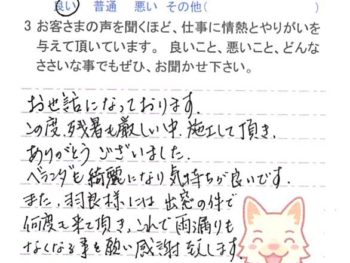 良い 普通 悪い その他( )
3 お客さまの声を聞くほど、仕事に情熱とやりがいを
与えて頂いています。 良いこと、悪いこと、どんな
ささいな事でもぜひ、お聞かせ下さい。
お世話になっております。
この度、残暑も厳しい中、施工して頂き、
ありがとうございました。
ベランダも綺麗になり気持ちが良いです。
また、羽良様には出窓の件で
何度も来て頂き、これで雨漏りも
なくなる事を願い感謝致します